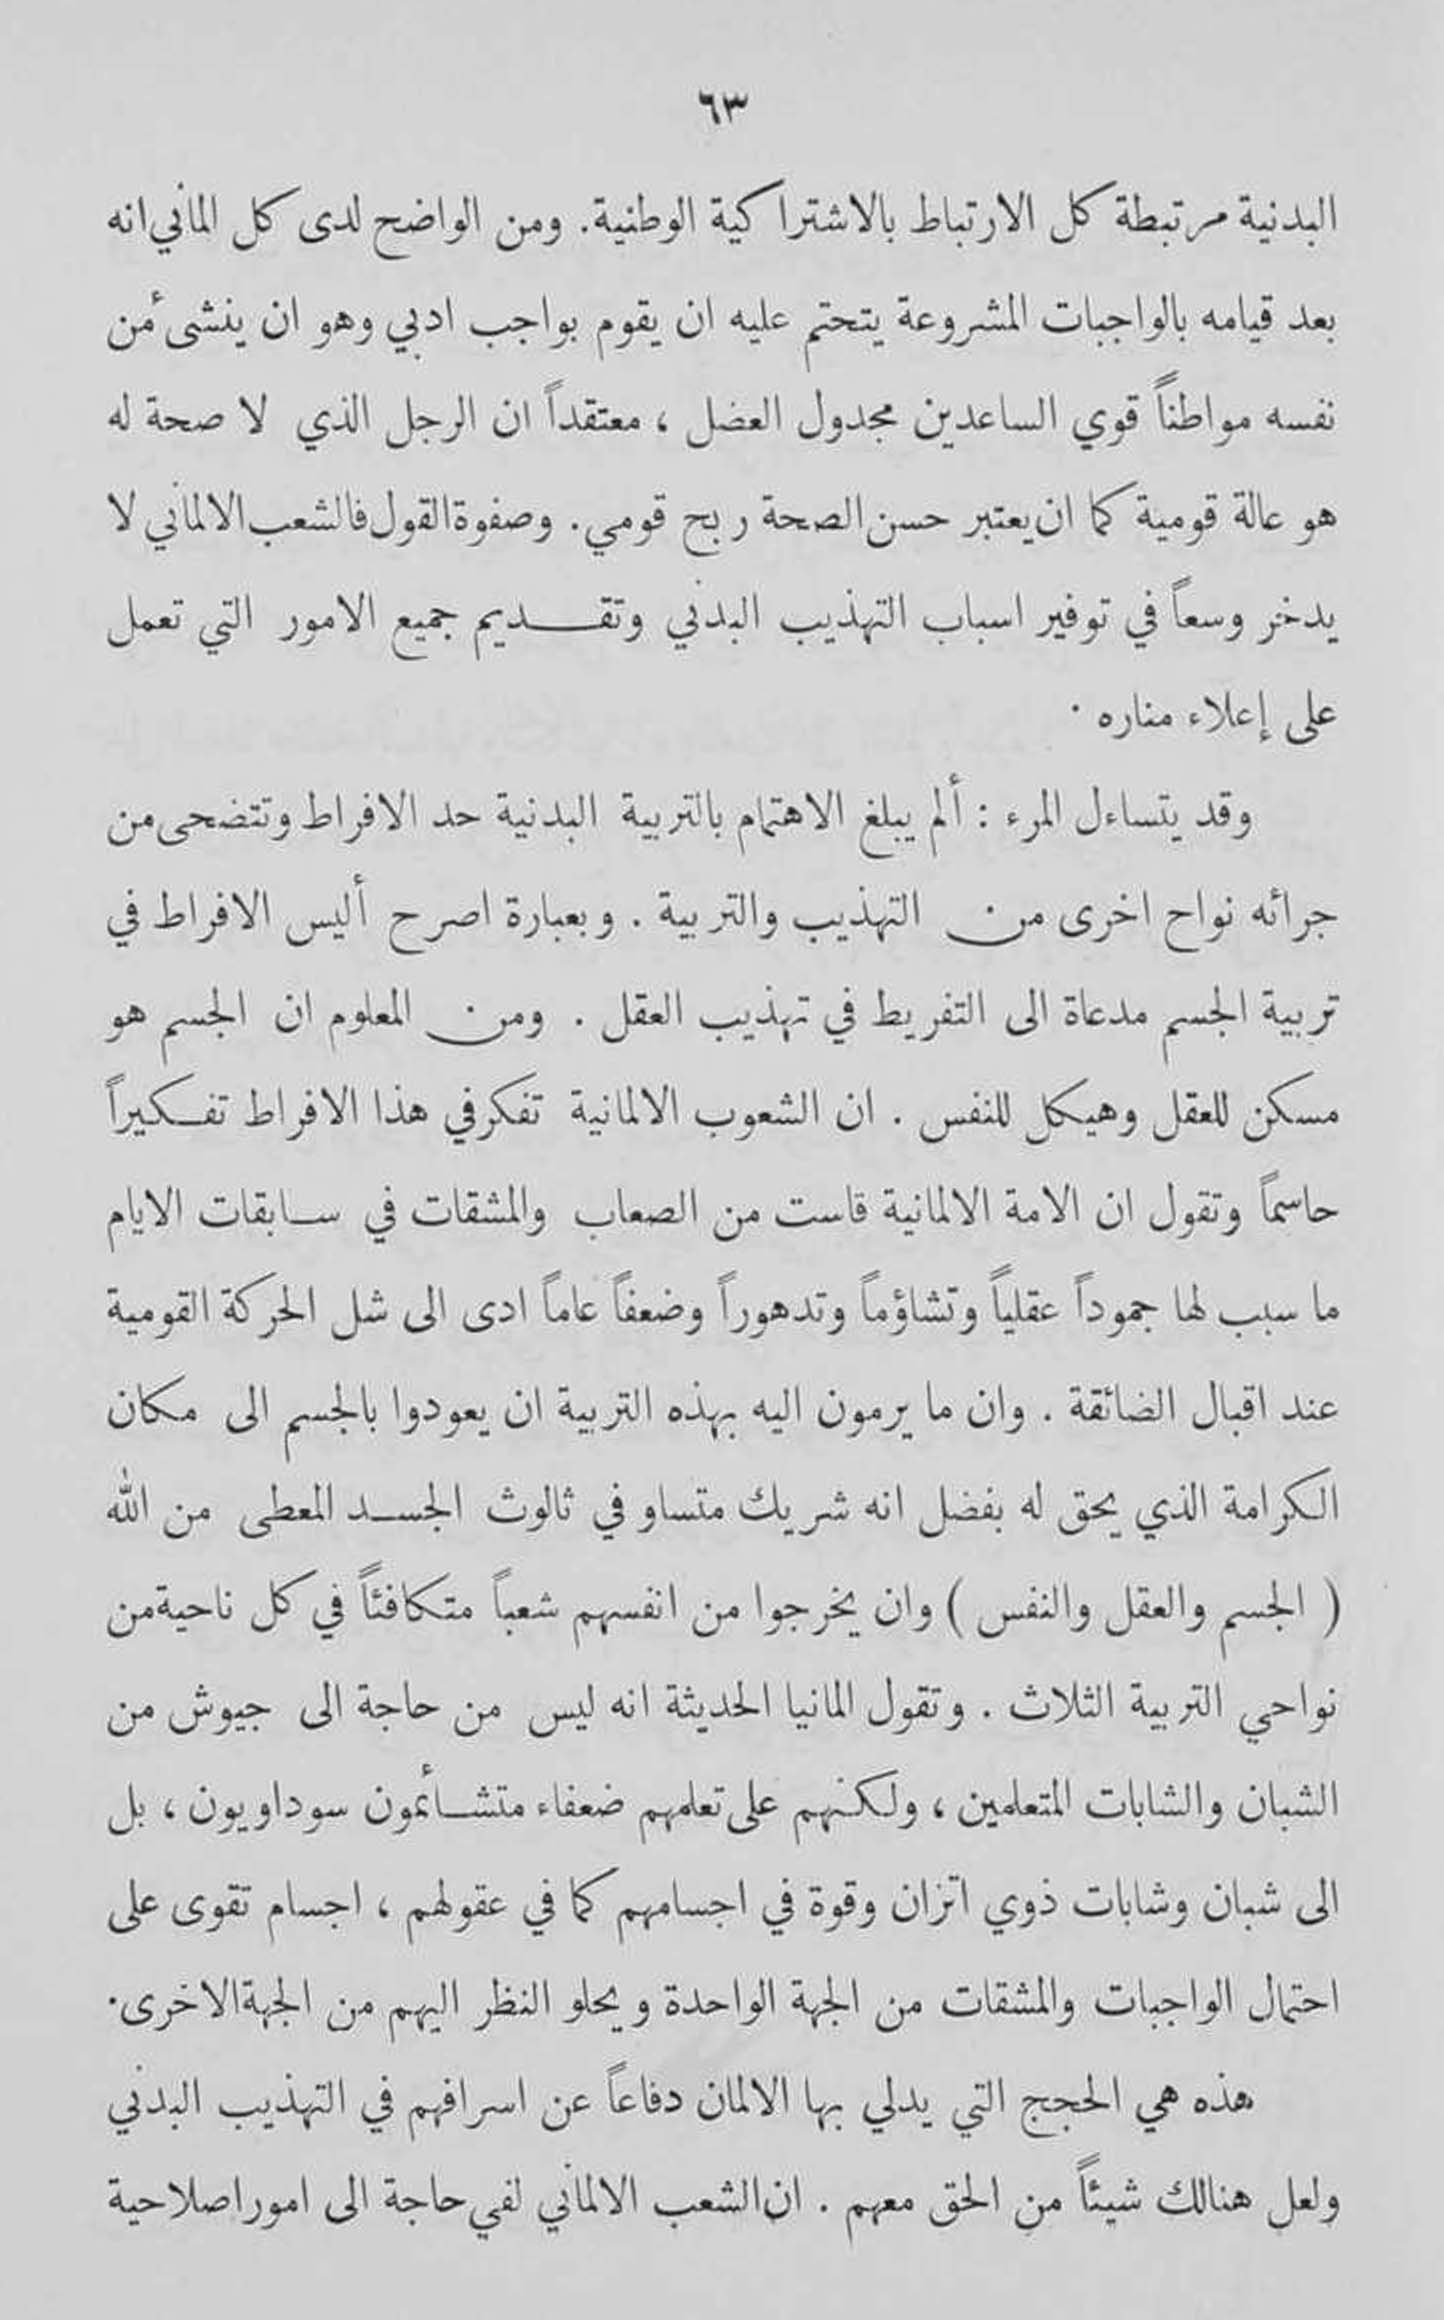 ٦٣
البدنية مرتبطة كل الارتباط بالاشتراكية الوطنية. ومن الواضح لدى كل الماني انه
بعد قيامه بالواجبات المشروعة يتحتم عليه ان يقوم بواجب ادبي وهو ان ينشئ من
نفسه مواطناً قوي الساعدين مجدول العضل ، معتقداً ان الرجل الذي لا صحة له
هو عالة قومية كما ان يعتبر حسن الصحة ربح قومي. وصفوة القول فالشعب الالماني لا
يدخر وسعاً في توفير اسباب التهذيب البدني وتقـديم جميع الامور التي تعمل
على إعلاء مناره .
وقد يتساءل المرء : ألم يبلغ الاهتمام بالتربية البدنية حد الافراط وتتضحى من
جرائه نواح اخرى من التهذيب والتربية . وبعبارة اصرح أليس الافراط في
تربية الجسم مدعاة الى التفريط في تهذيب العقل . ومن المعلوم ان الجسم هو
مسكن للعقل وهيكل للنفس . ان الشعوب الالمانية تفكر في هذا الافراط تفـكيراً
حاسماً وتقول ان الامة الالمانية قاست من الصعاب والمشقات في سـابقات الايام
ما سبب لها جموداً عقلياً وتشاؤماً وتدهوراً وضعفاً عاماً ادى الى شل الحركة القومية
عند اقبال الضائقة . وان ما يرمون اليه بهذه التربية ان يعودوا بالجسم الى مكان
الكرامة الذي يحق له بفضل انه شريك متساو في ثالوث الجسـد المعطى من الله
( الجسم والعقل والنفس ) وان يخرجوا من انفسهم شعباً متكافئاً في كل ناحية من
نواحي التربية الثلاث . وتقول المانيا الحديثة انه ليس من حاجة الى جيوش من
الشبان والشابات المتعلمين ، ولكنهم على تعلمهم ضعفاء متشـأئمون سوداويون ، بل
الى شبان وشابات ذوي اتزان وقوة في اجسامهم كما في عقولهم ، اجسام تقوى على
احتمال الواجبات والمشقات من الجهة الواحدة ويحلو النظر اليهم من الجهة الاخرى.
هذه هي الحجج التي يدلي بها الالمان دفاعاً عن اسرافهم في التهذيب البدني
ولعل هنالك شيئاً من الحق معهم . ان الشعب الالماني لفي حاجة الى امور اصلاحية